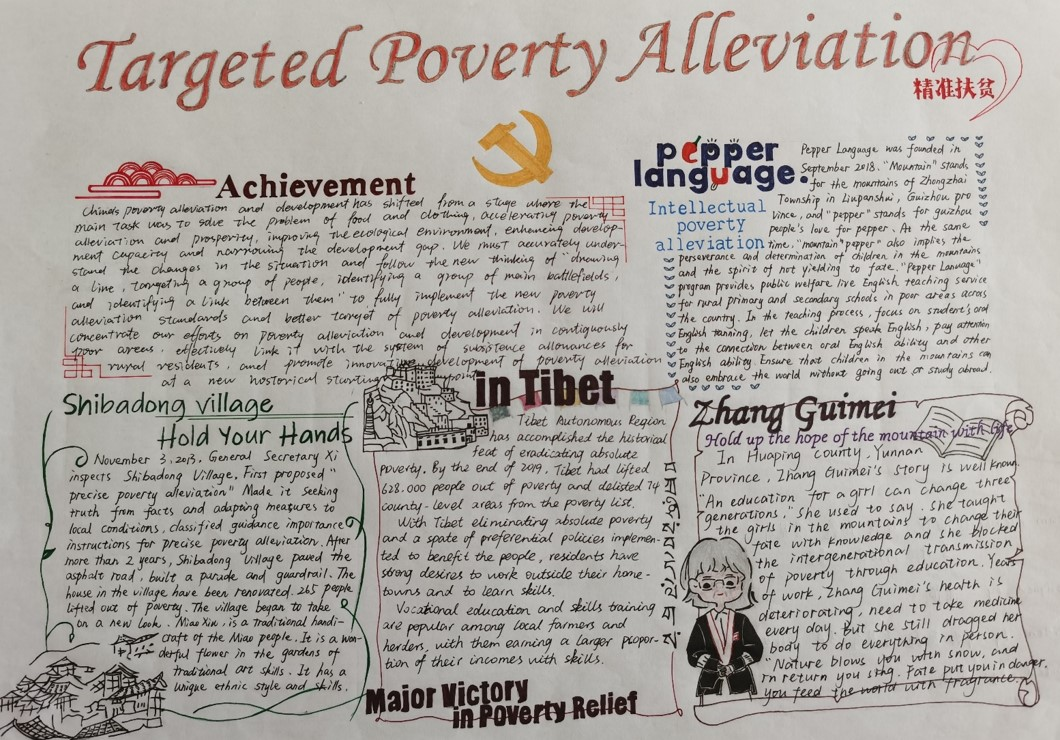 Targeted Poverty Alleviation
精准扶贫
Achievement
China's poverty alleviation and development has shifted from a stage where the
main task was to solve the problem of food and clothing, accelerating poverty
alleviation and prosperity, improving the ecological environment, enhancing develop-
ment capacity and narrowing the development gap. We must accurately under-
stand the changes in the situation and follow the new thinking of "drawing
a line, targeting a group of people, identifying a group of main battlefields,
and identifying a link between them" to fully implement the new poverty
alleviation standards and better target of poverty alleviation. We will
concentrate our efforts on poverty alleviation and development in contiguously
poor areas, effectively link it with the system of subsistence allowances for
rural residents, and promote innova development of poverty alleviation
at a new hostorical starting point
pepper
language.
Intellectual
poverty
alleviation
Pepper Language was founded in
September 2018. "Mountain" stands
for the mountains of Zhongzhai
Township in Liupanshui, Guizhou pro
vince, and "pepper" stands for guizhou
people's love for pepper. At the same
time, "mountain pepper" also implies the
perseverance and determination of children in the mountains
and the spirit of not yielding to fate. "Pepper Language"
program provides public welfare live English teaching service
for rural primary and secondary schools in poor areas across
the country. In the teaching process, focus on student's oral
English tanning, let the children speak English, pay attention
to the connection between oral English ability and other
English ability. Ensure that children in the mountains can
also embrace the world without going out or study abroad.
Shibadong village
Hold Your Hands
November 3, 2013, General Secretary Xi
inspects Shibadong Village. First proposed "
precise poverty alleviation" Made it seeking
truth from facts and adapting measures to
local conditions, classified guidance importance
instructions for precise poverty alleviation. After
more than 2 years, Shibadong Village paved the
asphalt road, built a parade and guardrail. The
house in the village have been renovated. 265 people
lifted out of poverty. The village began to take
on a new look. Miao Xiu, is a traditional handi-
craft of the Miao people. It is a won-
derful flower in the gardens of
traditional art skills. It has a
unique ethnic style and skills.
in Tibet
Tibet Autonomous Region
has accomplished the historical
feat of eradicating absolute
poverty. By the end of 2019, Tibet had lifted
628.000 people out of poverty and delisted 74
county-level areas from the poverty list.
With Tibet eliminating absolute poverty
and a spate of preferential policies implemen-
ted to benefit the people, residents have
strong desires to work outside their home-
towns and to learn skills.
Vocational education and skills training
are popular among local farmers and
herders, with them earning a larger propor-
tion of their incomes with skills.
Major Victory
in Poverty Relief
Zhang Guimei
Hold up the hope of the mountain with life
In Huaping County, Yunnan
Province, Zhang Guimei's story is well known.
"An education for a girl can change three
generations." She used to say. She taught
the girls in the mountains to change their
fate with knowledge and she blocked
the intergenerational transmission
of poverty through education. Years
of work, Zhang Guimei's health is
deteriorating, need to take medicine
every day. But she still dragged her
body to do everything in person.
"Nature blows you with snow, and
in return you sing. Fate put you in danger.
you feed the world with fragrance.